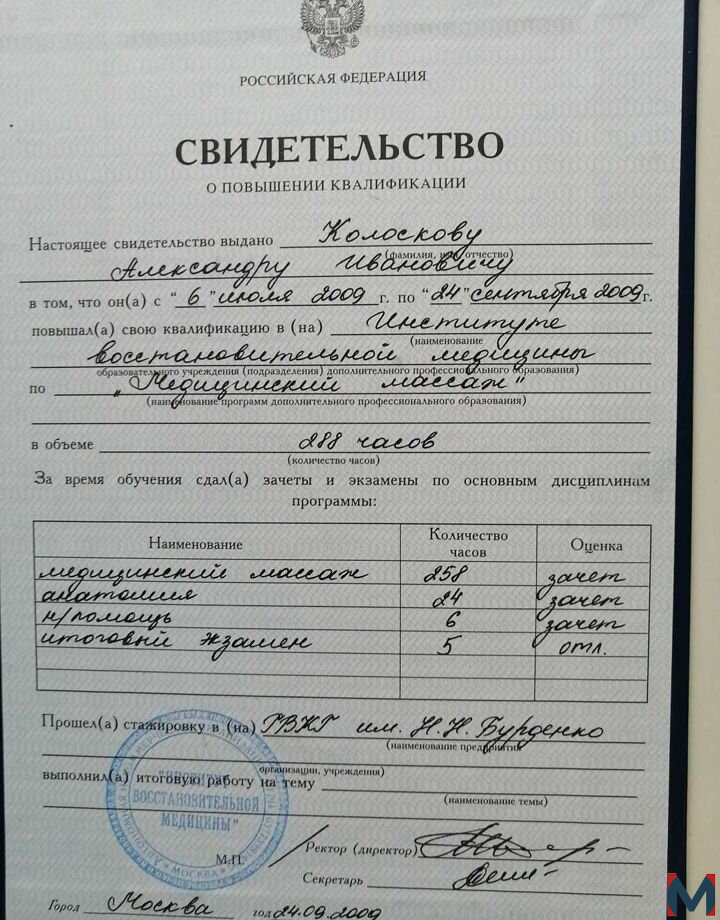 РОССИЙСКАЯ ФЕДЕРАЦИЯ
СВИДЕТЕЛЬСТВО
О ПОВЫШЕНИИ КВАЛИФИКАЦИИ
Настоящее свидетельство выдано Колоскову
(фамилия, имя, отчество)
Александру Ивановичу
в том, что он(а) с “6” июля 2009 г. по “24” сентября 2009г.
повышал(а) свою квалификацию в (на) Институте
(наименование
восстановительной медицины
образовательного учреждения (подразделения) дополнительного профессионального образования)
по „Медицинский массаж“
(наименование программ дополнительного профессионального образования)
в объеме 288 часов
(количество часов)
За время обучения сдал(а) зачеты и экзамены по основным дисциплинам
программы:
Наименование Количество часов Оценка
медицинский массаж 258 зачет
анатомия 24 зачет
н/помощь 6 зачет
итоговый экзамен 5 отл.
Прошел(а) стажировку в (на) ГВКГ им. Н.Н. Бурденко
(наименование предприятия
организации, учреждения)
выполнил(а) итоговую работу на тему
(наименование темы)
"ИНСТИТУТ
ВОССТАНОВИТЕЛЬНОЙ
МЕДИЦИНЫ"
МОСКВА
М.П. Ректор (директор)
Секретарь
Город Москва год 24.09.2009
М